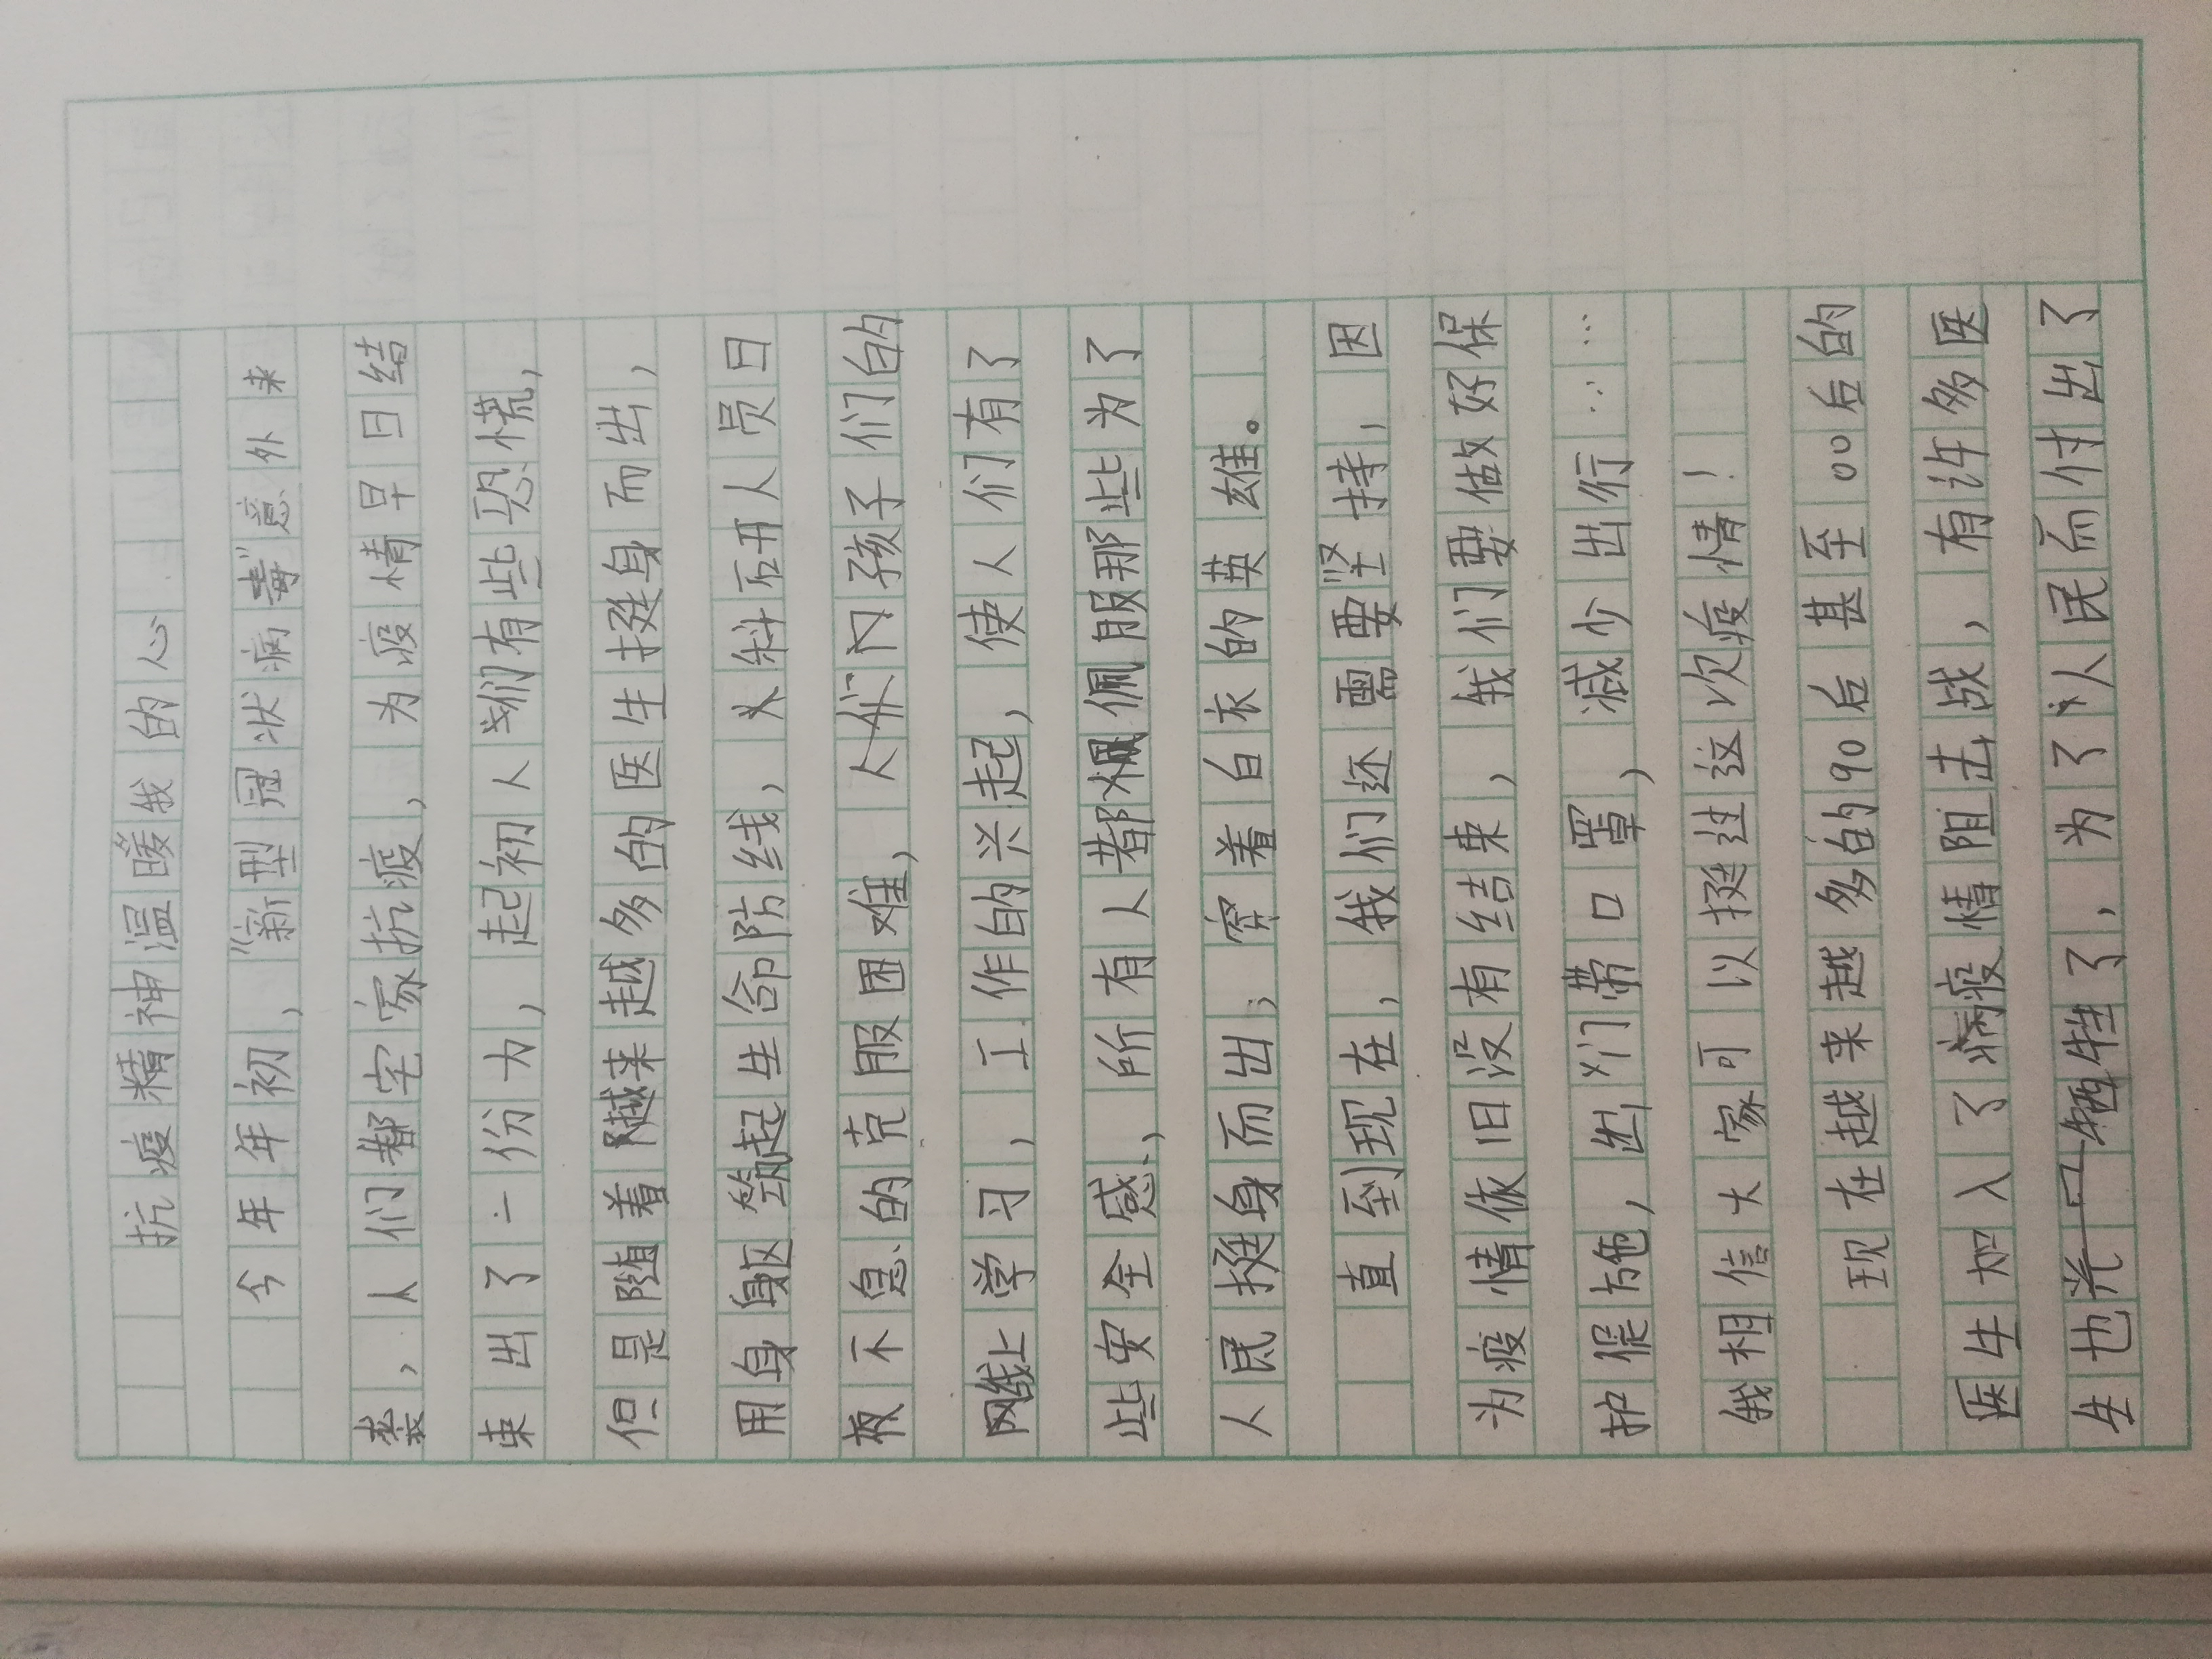 抗疫精神温暖我的心
今年年初，“新型冠状病毒”意外来
袭，人们都宅家抗疫，为疫情早日结
束出了一份力，起初人们有些恐慌，
但是随着越来越多的医生挺身而出，
用身躯筑起生命防线，科研人员日
夜不急的克服困难，人们孩子们的
网线上学习，工作的兴起，使人们有了
些安全感，所有人都佩服那些为了
人民挺身而出，穿着白衣的英雄。
直到现在，我们还需要坚持，因
为疫情依旧没有结束，我们要做好保
护措施，出门带口罩，减少出行……
我相信大家可以挺过这次疫情！
现在越来越多的90后甚至00后的
医生加入了疫情阻击战，有许多医
生也牺牲了，为了人民而付出了